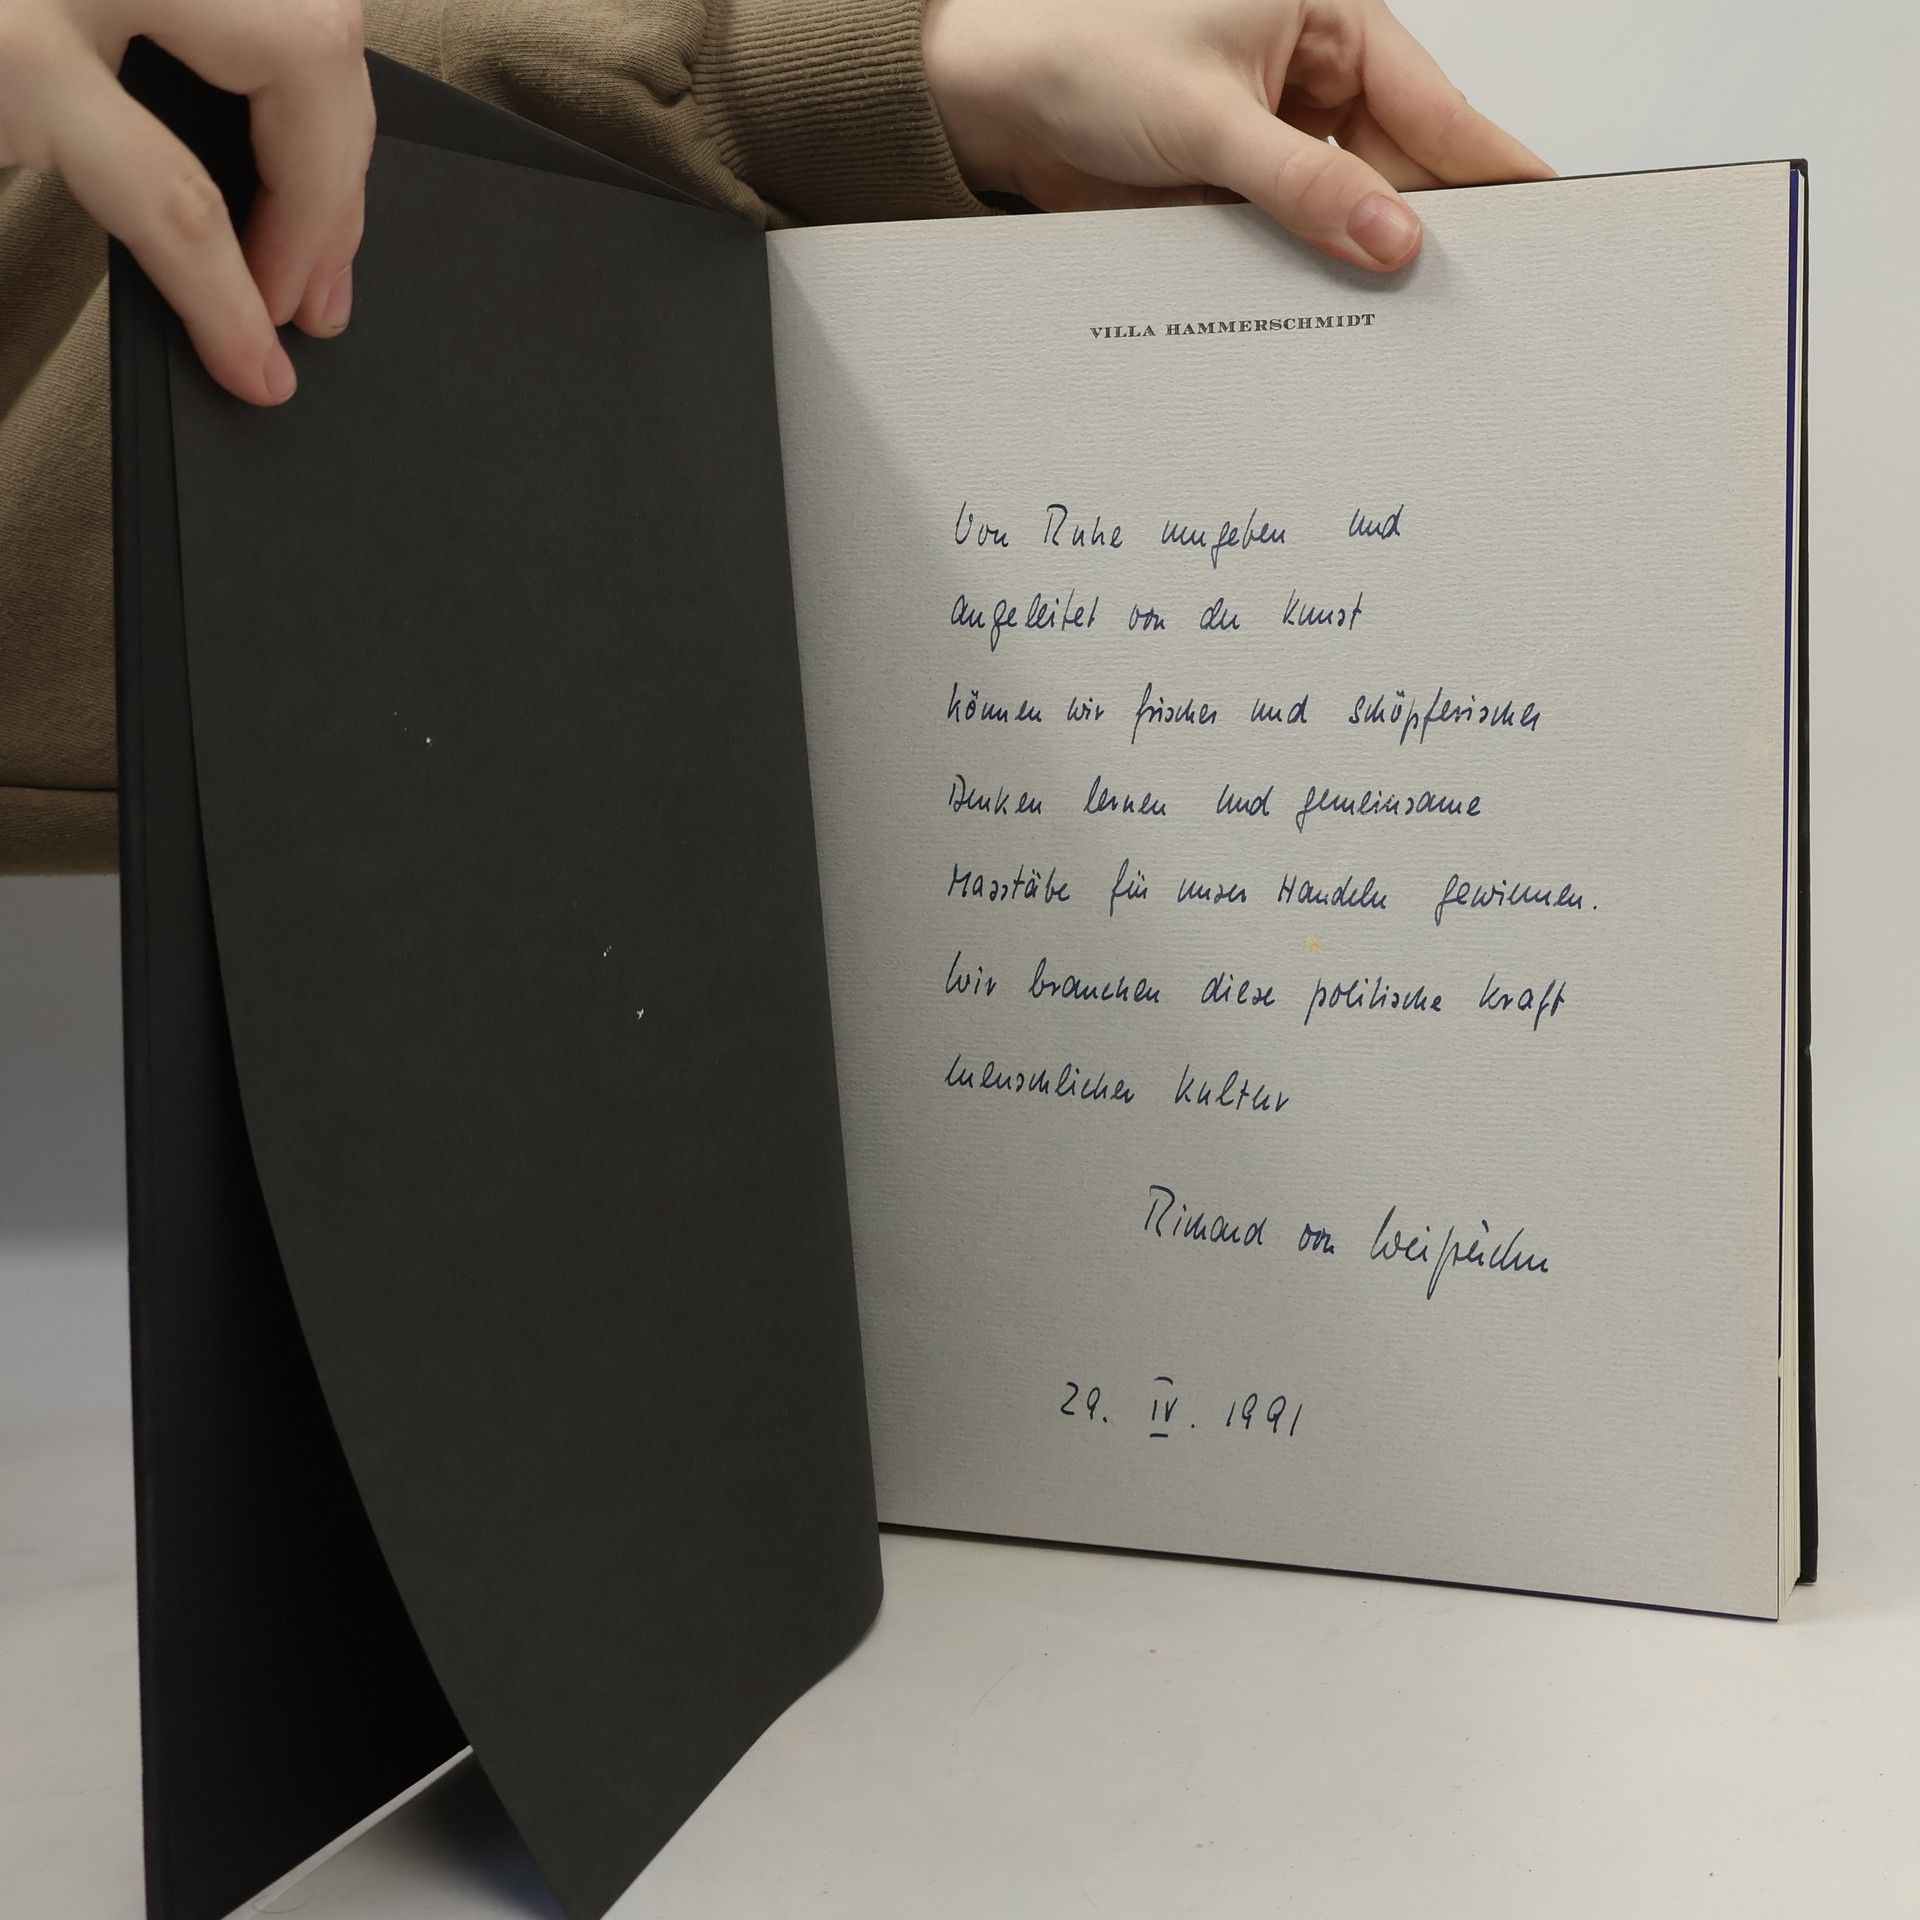 VILLA HAMMERSCHMIDT
Von Ruhe umgeben und
angeleitet von der Kunst
können wir frisches und schöpferisches
Denken lernen und gemeinsame
Masstäbe für unser Handeln gewinnen.
Wir brauchen diese politische Kraft
menschlicher Kultur
Richard von Weizsäcker
29. IV. 1991